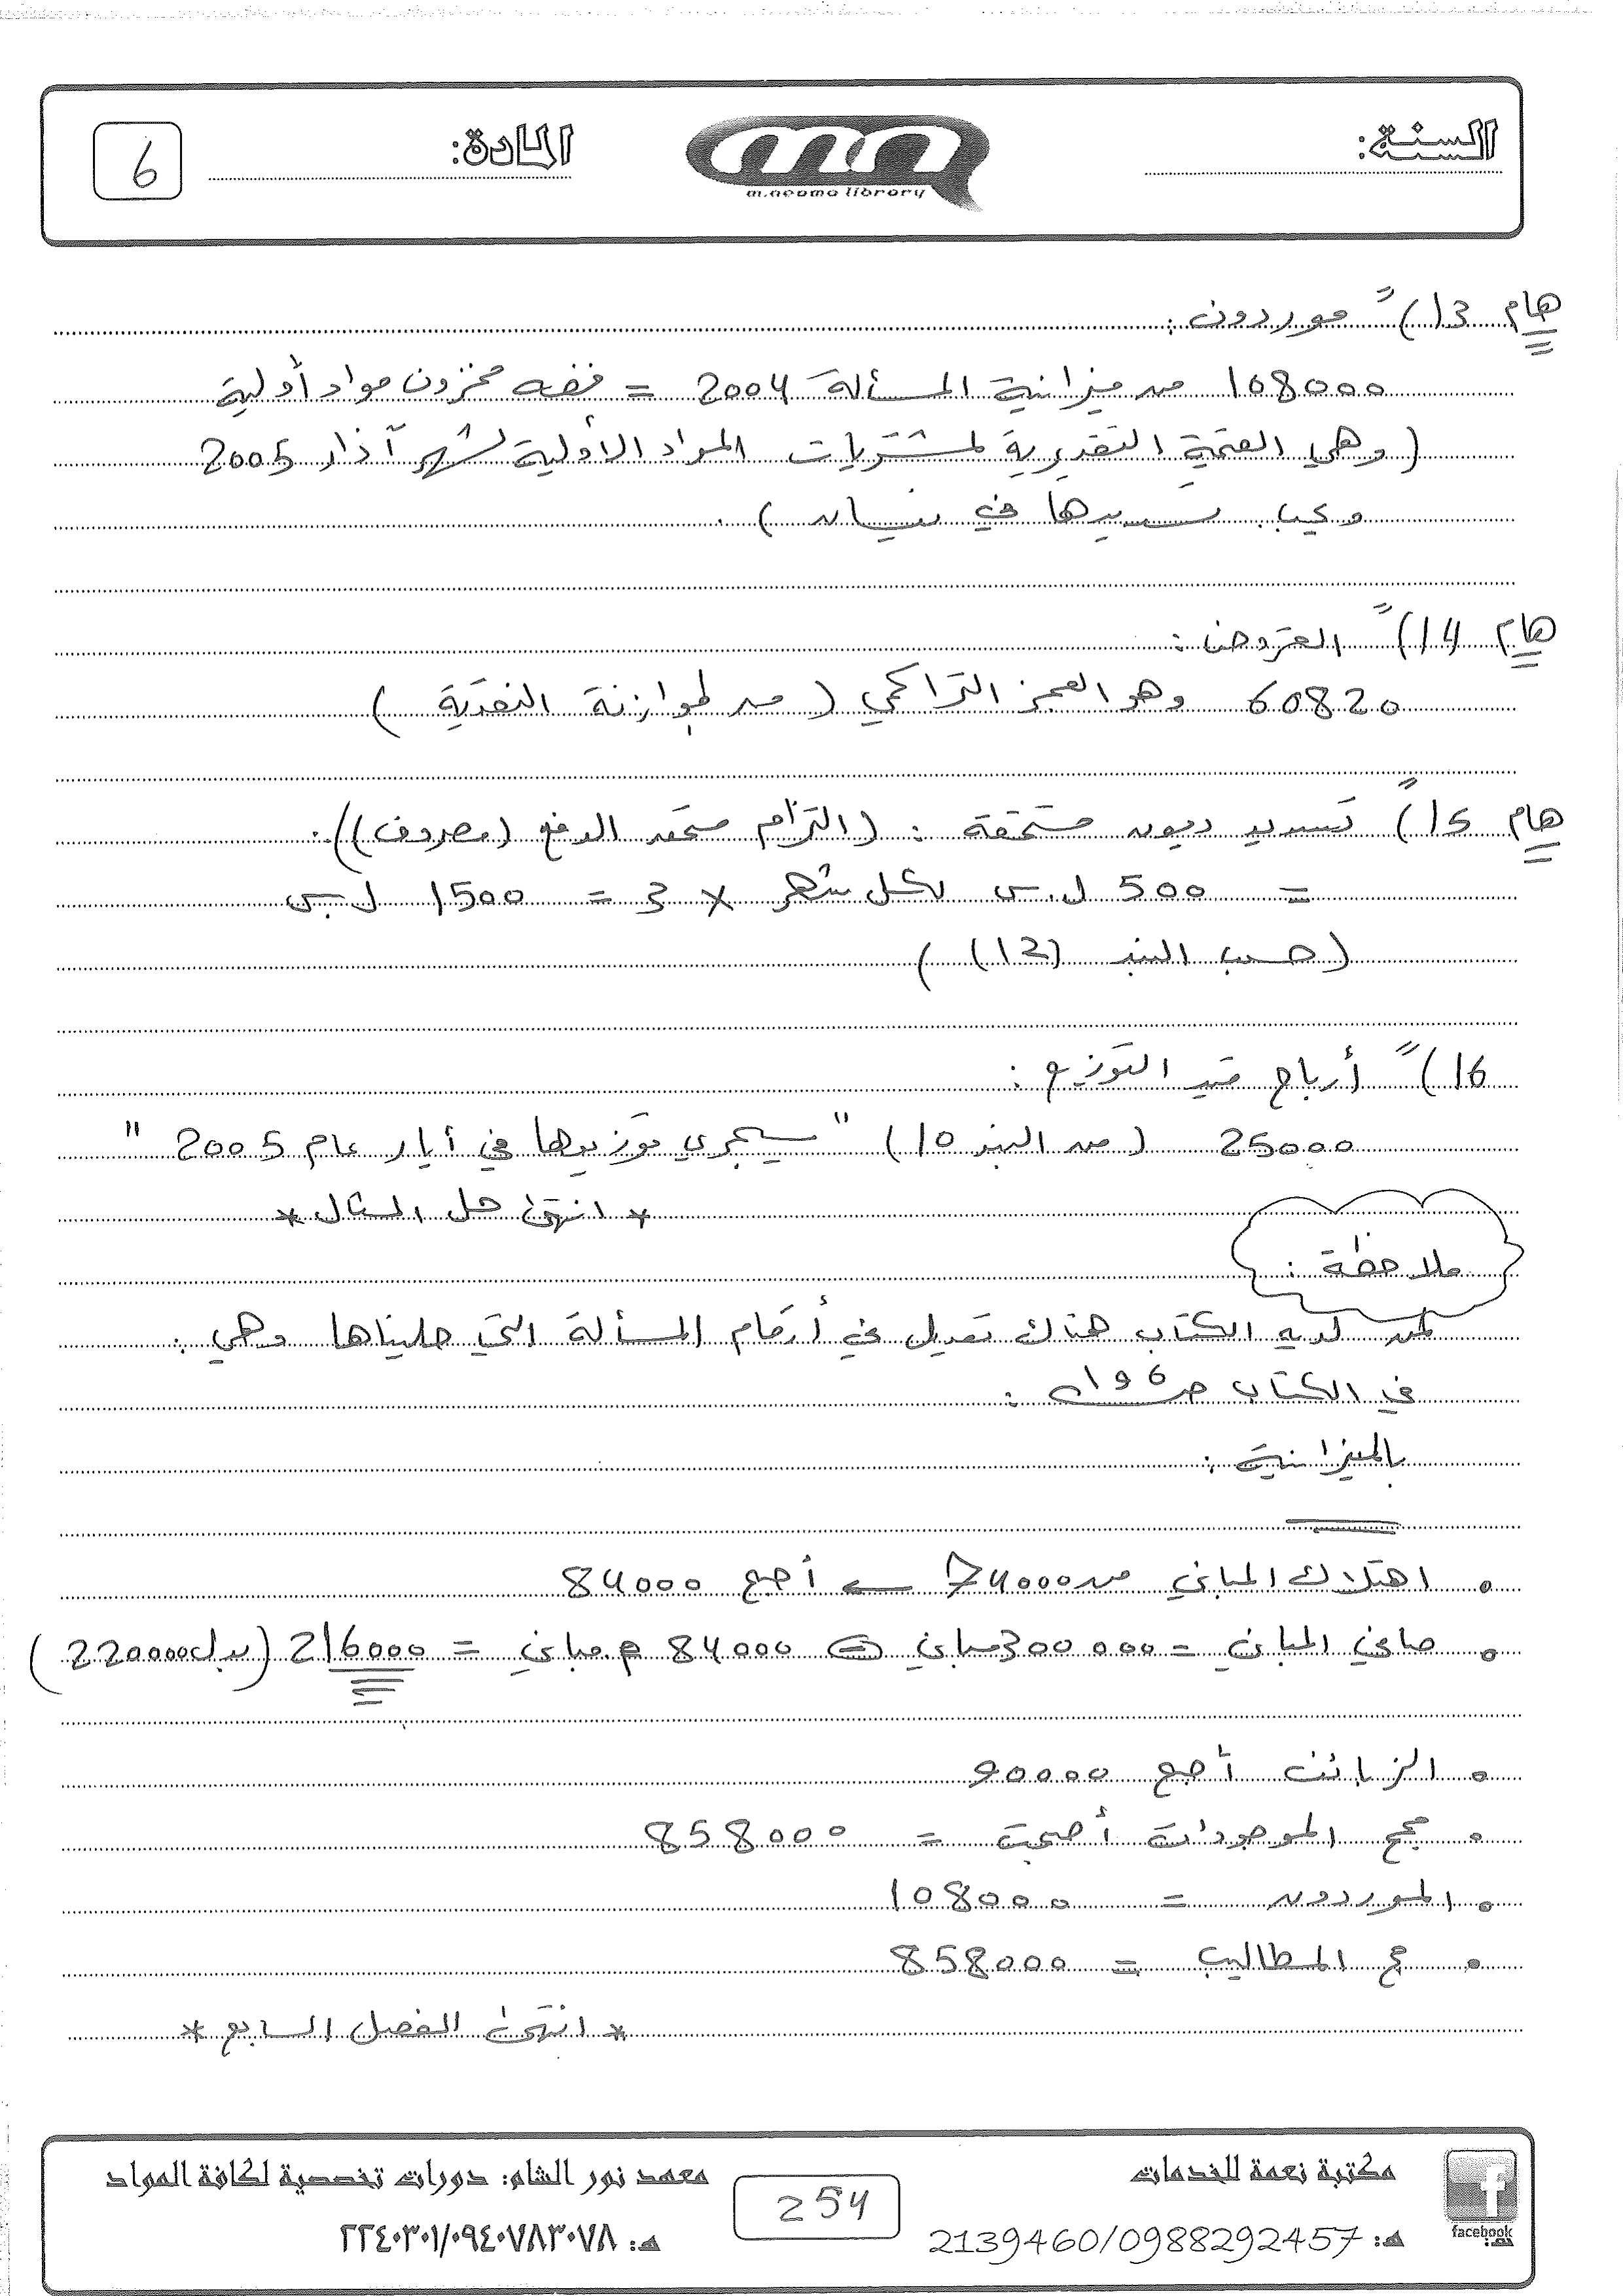 السنة:
m.neoma library
المادة:
6
هام 13) موردون :
108000 من ميزانية المسألة 2004 = مخزون مواد أولية
(وهي القيمة التقديرية لمشتريات المواد الأولية لشهر آذار 2005
ويجب تسديدها في نيسان)
هام 14) القروض :
60820 وهو العجز التراكمي (من الموازنة النقدية)
هام 15) تسديد ديون مستحقة : (التزام مستحق الدفع (مصروف)).
= 500 ل.س لكل شهر × 3 = 1500 ل.س
(حسب البند (12))
16) أرباح قيد التوزيع :
25000 (من البند 10) "سيجري توزيعها في أيار عام 2005"
* انتهى حل المثال *
ملاحظة :
لمن لديه الكتاب هناك تعديل في أرقام المسألة التي حليناها وهي :
في الكتاب ص196 :
بالميزانية :
• اهتلاك المباني من 74000 ← أصبح 84000
• صافي المباني = 300000 مباني - 84000 م.مباني = 216000 (بدل 220000)
• الزبائن أصبح 90000
• مج الموجودات أصبحت = 858000
• الموردون = 108000
• مج المطاليب = 858000
* انتهى الفصل السابع *
facebook
مكتبة نعمة للخدمات
هـ: 2139460/0988292457
254
معهد نور الشام: دورات تخصصية لكافة المواد
هـ: ٢٢٤٠٣٠١/٠٩٤٠٧٨٣٠٧٨